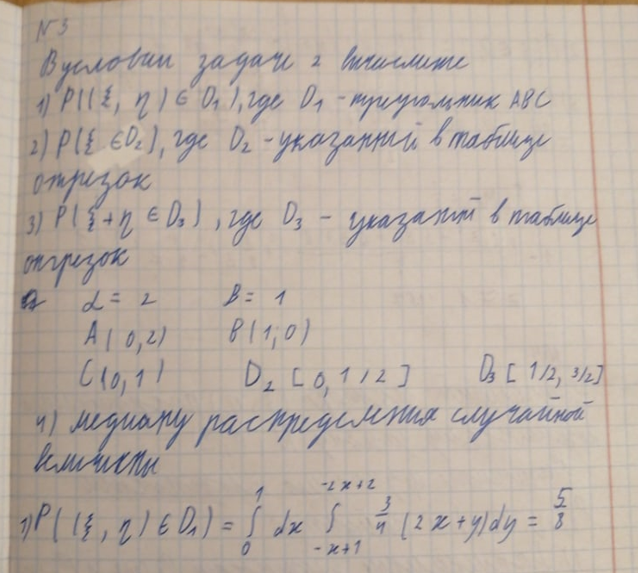 N3
В условии задачи 2 вычислите
1) P((ξ, η) ∈ D₁), где D₁ - треугольник ABC
2) P(ξ ∈ D₂), где D₂ - указанный в таблице
отрезок
3) P(ξ + η ∈ D₃), где D₃ - указаный в таблице
отрезок
α = 2 B = 1
A(0,2) B(1,0)
C(0,1) D₂ [0, 1/2] D₃ [1/2, 3/2]
4) медиану распределения случайной
величины
1) P((ξ, η) ∈ D₁) = ∫₀¹ dx ∫₋ₓ₊₁⁻²ˣ⁺² 3/4 (2x+y)dy = 5/8